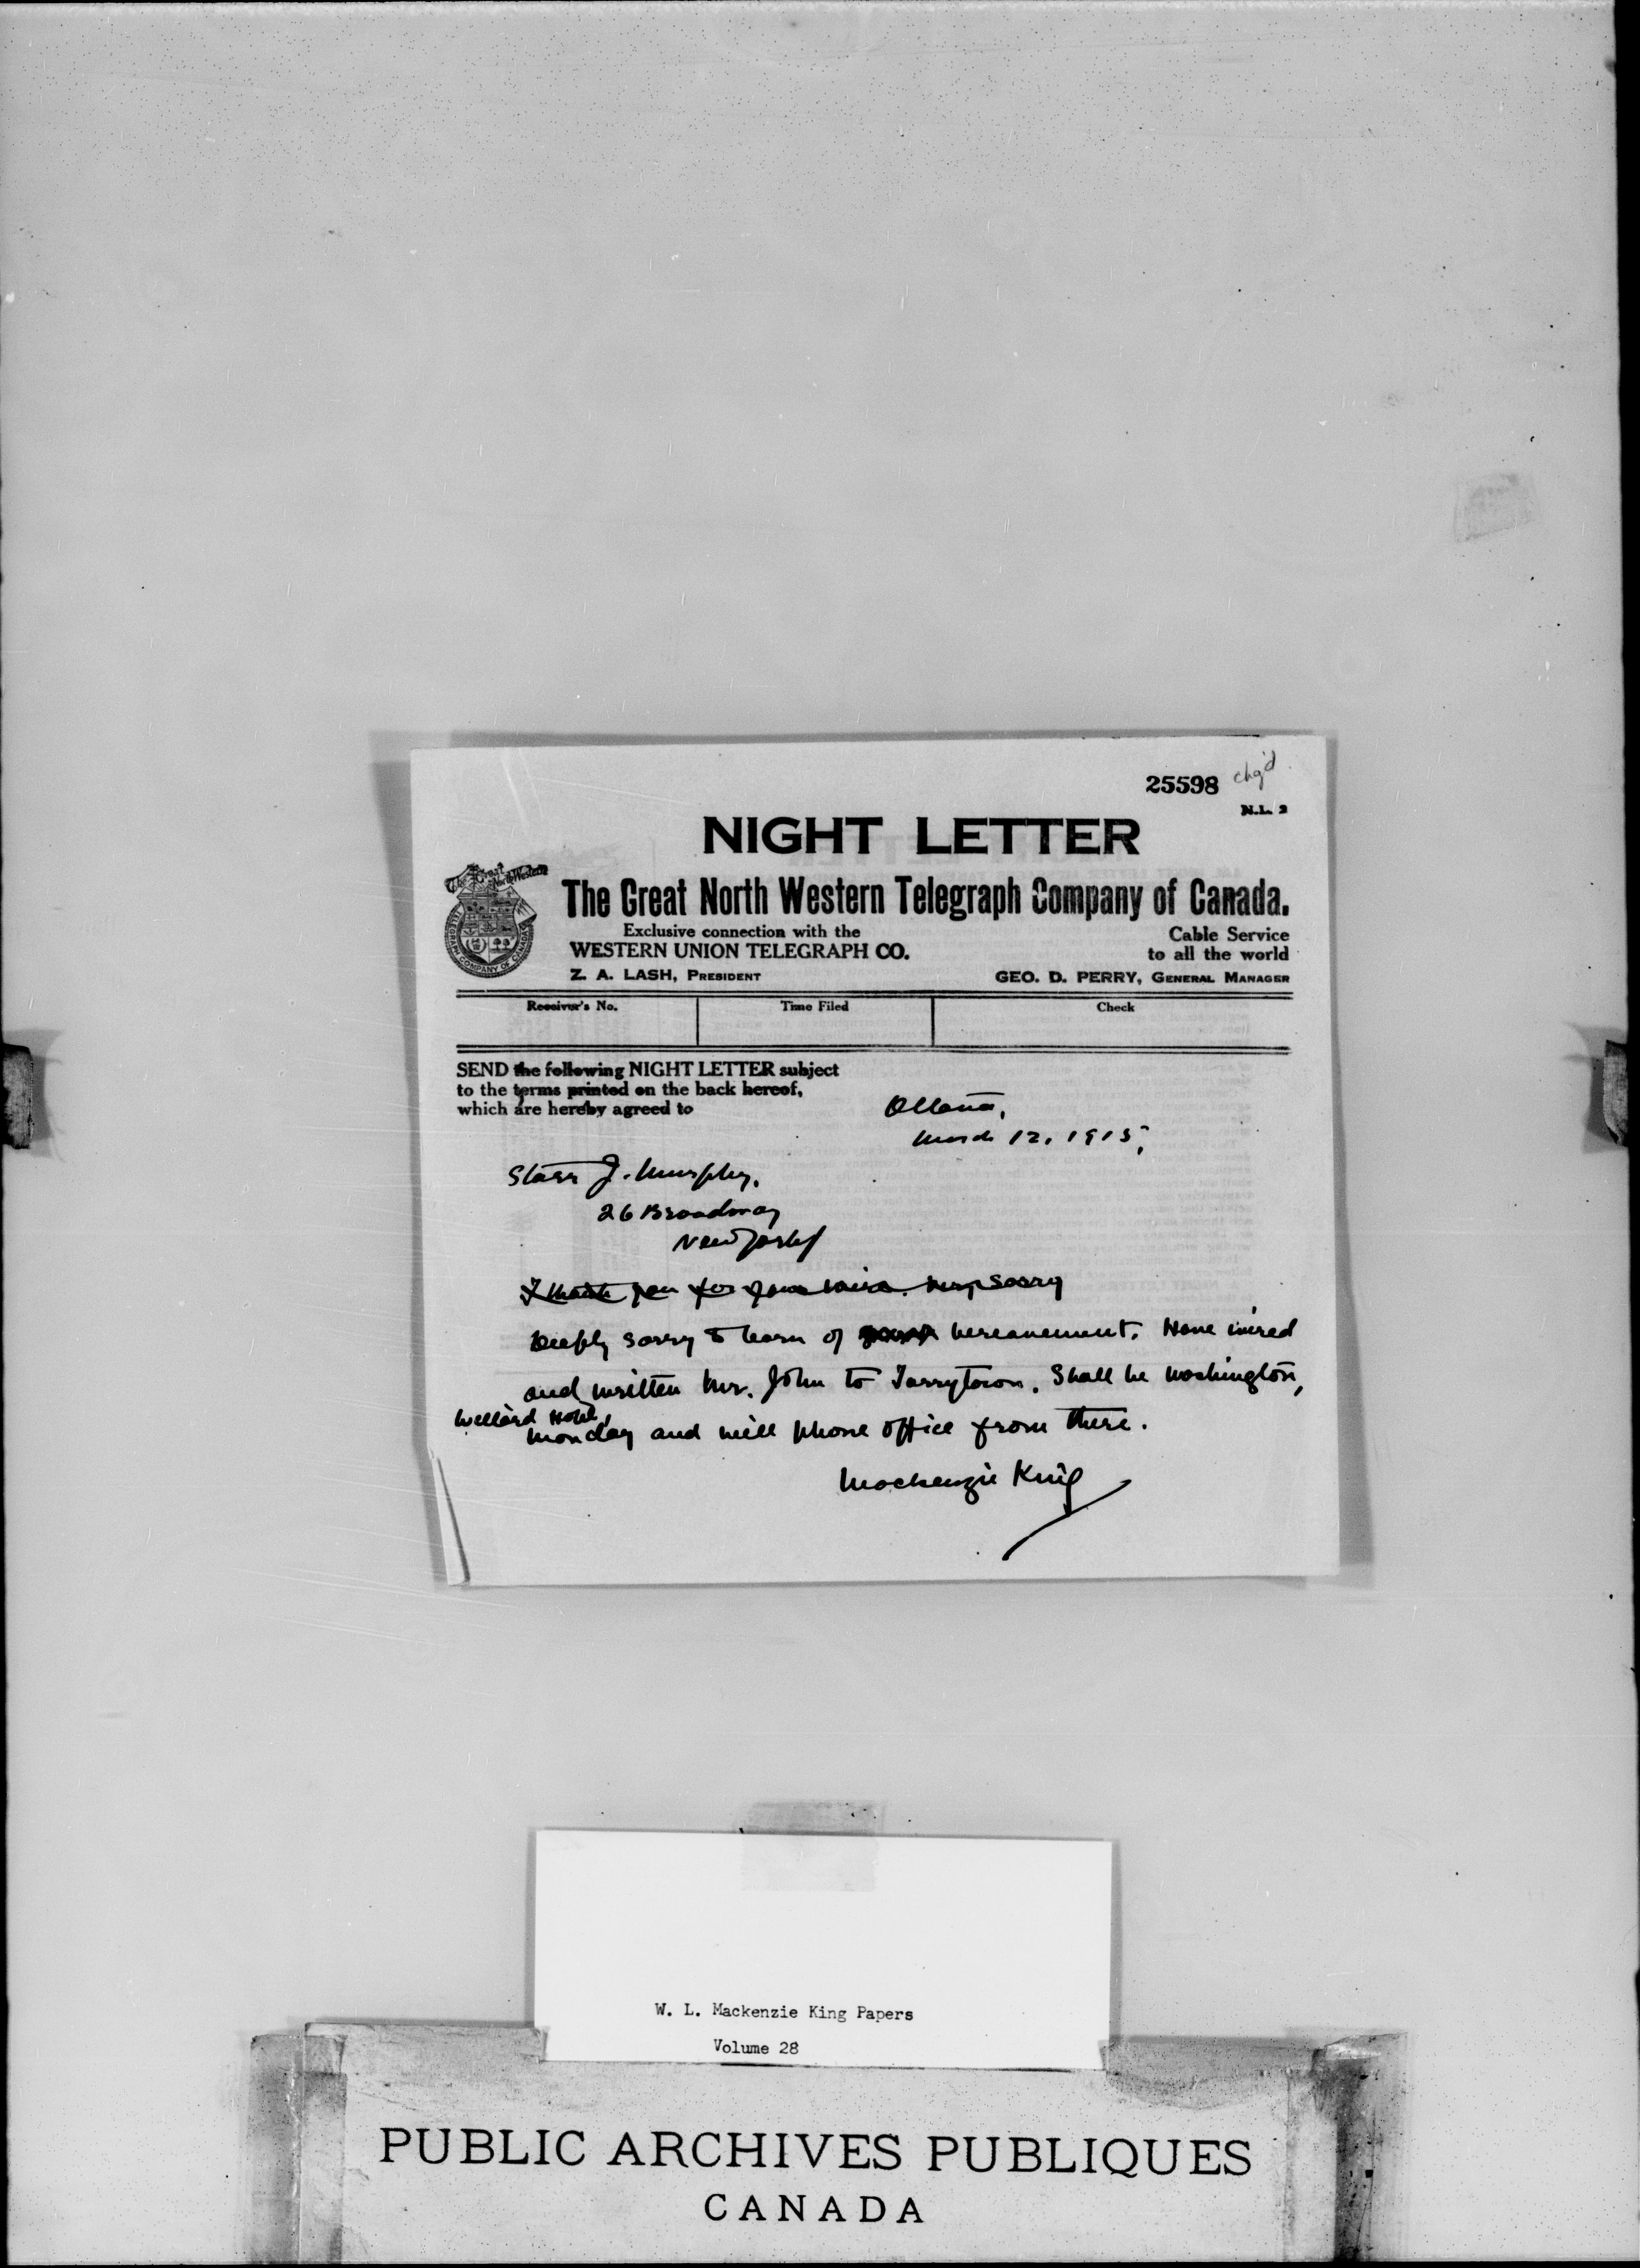 25598 chg'd
N.L. 2
NIGHT LETTER
The Great North Western
TELEGRAPH COMPANY OF CANADA
The Great North Western Telegraph Company of Canada.
Exclusive connection with the
WESTERN UNION TELEGRAPH CO.
Cable Service
to all the world
Z. A. LASH, PRESIDENT
GEO. D. PERRY, GENERAL MANAGER
Receiver's No. Time Filed Check
SEND the following NIGHT LETTER subject
to the terms printed on the back hereof,
which are hereby agreed to
Ottawa,
March 12, 1915,
Starr J. Murphy,
26 Broadway
New York
I thank you for your wire. Very sorry
Deeply sorry to learn of bereavement. Have wired
and written Mr. John to Tarrytown. Shall be Washington,
Willard Hotel,
Monday and will phone office from there.
Mackenzie King
W. L. Mackenzie King Papers
Volume 28
PUBLIC ARCHIVES PUBLIQUES
CANADA